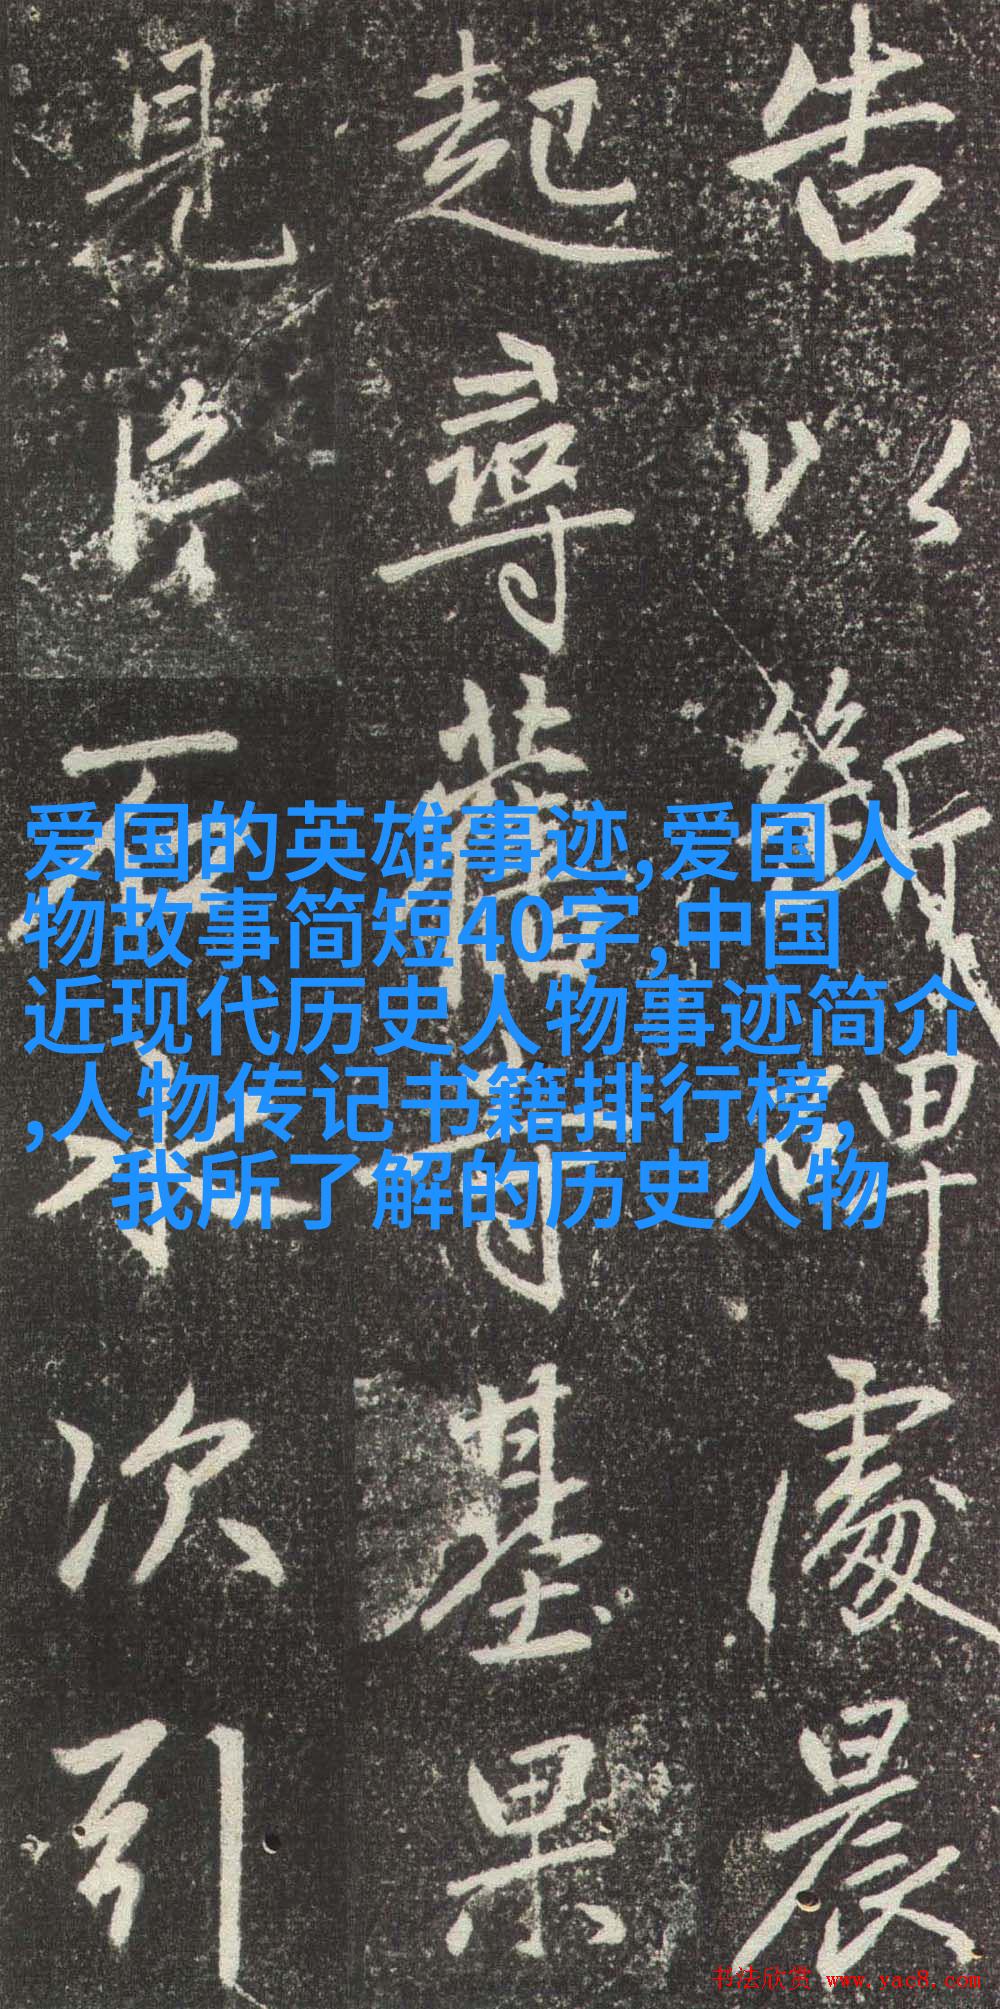 告以斷碑處晨
起尋舊寺基果
見 石 次引
爱国的英雄事迹,爱国人
物故事简短40字,中国
近现代历史人物事迹简介
,人物传记书籍排行榜,
我所了解的历史人物
书法欣赏 www.yac8.com